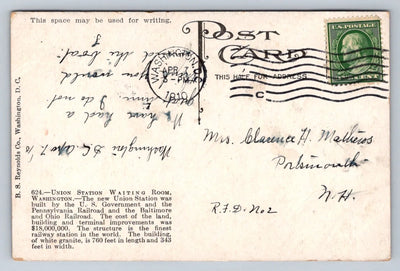 This space may be used for writing.
POST CARD
THIS HALF FOR ADDRESS
U.S. POSTAGE
WASHINGTON, D.C.
APR 7
8-PM
1910
C
Washington D.C. Apr. 7/10
We have had a
time I do not
you would
the boat
I
Mrs. Clarence H. Mathews
Portsmouth
N.H.
R.F.D. No 2
B. S. Reynolds Co., Washington, D. C.
624.—UNION STATION WAITING ROOM,
WASHINGTON.—The new Union Station was
built by the U. S. Government and the
Pennsylvania Railroad and the Baltimore
and Ohio Railroad. The cost of the land,
building and terminal improvements was
$18,000,000. The structure is the finest
railway station in the world. The building,
of white granite, is 760 feet in length and 343
feet in width.